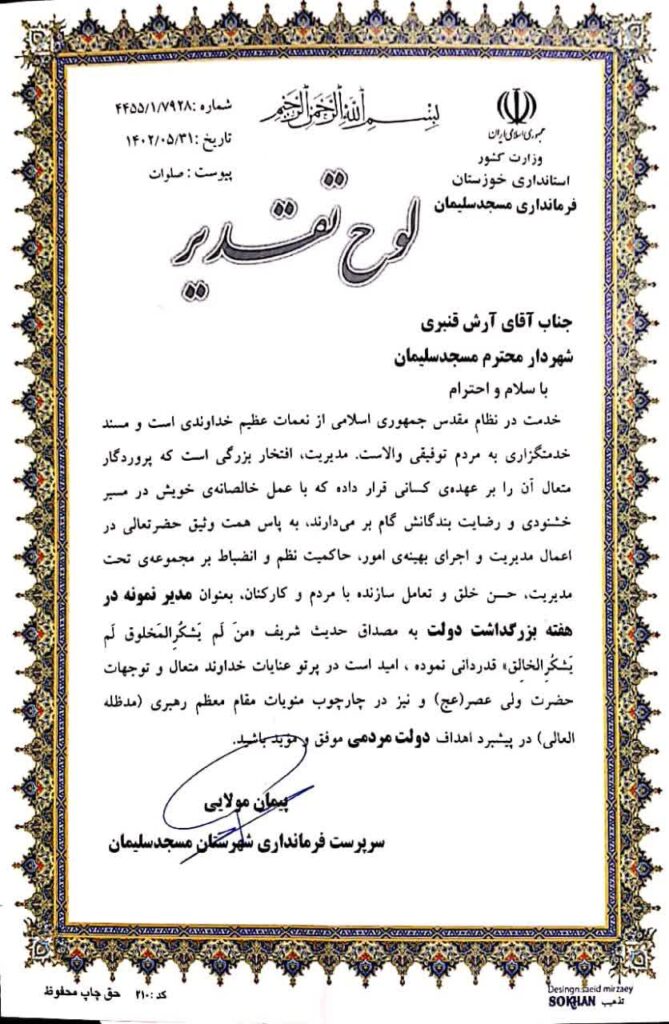 بِسْمِ اللهِ الرَّحْمنِ الرَّحِیمِ
جمهوری اسلامی ایران
وزارت کشور
استانداری خوزستان
فرمانداری مسجدسلیمان
شماره :۴۴۵۵/۱/۷۹۲۸
تاریخ :۱۴۰۲/۰۵/۳۱
پیوست : صلوات
لوح تقدیر
جناب آقای آرش قنبری
شهردار محترم مسجدسلیمان
با سلام و احترام
خدمت در نظام مقدس جمهوری اسلامی از نعمات عظیم خداوندی است و مسند
خدمتگزاری به مردم توفیقی والاست. مدیریت، افتخار بزرگی است که پروردگار
متعال آن را بر عهده‌ی کسانی قرار داده که با عمل خالصانه‌ی خویش در مسیر
خشنودی و رضایت بندگانش گام بر می‌دارند، به پاس همت وثیق حضرتعالی در
اعمال مدیریت و اجرای بهینه‌ی امور، حاکمیت نظم و انضباط بر مجموعه‌ی تحت
مدیریت، حسن خلق و تعامل سازنده با مردم و کارکنان، بعنوان مدیر نمونه در
هفته بزرگداشت دولت به مصداق حدیث شریف «منَ لَم یَشکُرِالمَخلوق لَم
یَشکُرِالخالِق» قدردانی نموده ، امید است در پرتو عنایات خداوند متعال و توجهات
حضرت ولی عصر(عج) و نیز در چارچوب منویات مقام معظم رهبری (مدظله
العالی) در پیشبرد اهداف دولت مردمی موفق و مؤید باشید.
پیمان مولایی
سرپرست فرمانداری شهرستان مسجدسلیمان
کد :۲۱۰ حق چاپ محفوظ
Desingn:saeid mirzaey
تذهیب SOKHAN